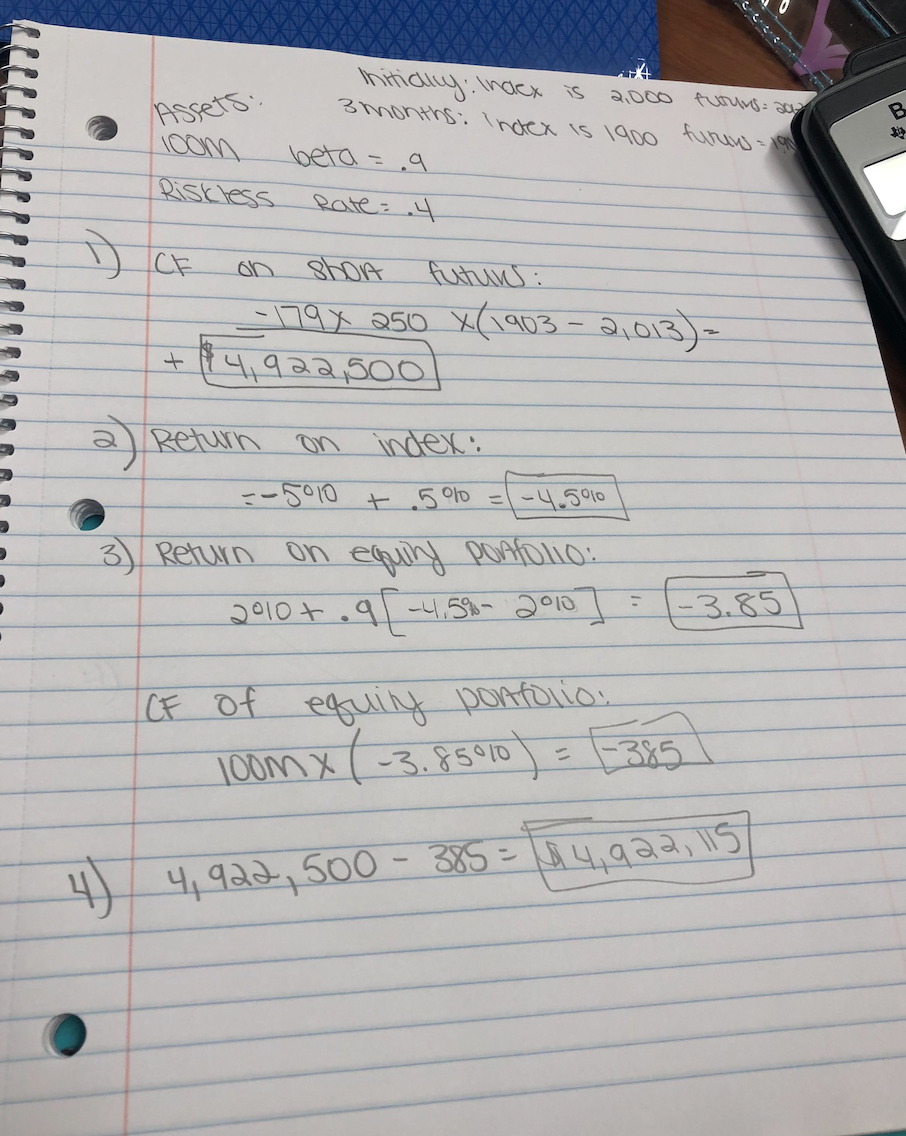 Initially: Index is 2,000 futures =
Assets: 3 months: index is 1900 futures =
100m beta = .9
Riskless Rate = .4
1) CF on short futures:
-179 x 250 x (1903 - 2,013) =
+ $4,922,500
2) Return on index:
= -5% + .5% = -4.5%
3) Return on equity portfolio:
2% + .9 [-4.5% - 2%] = -3.85
CF of equity portfolio:
100m x (-3.85%) = -385
4) 4,922,500 - 385 = $4,922,115
B